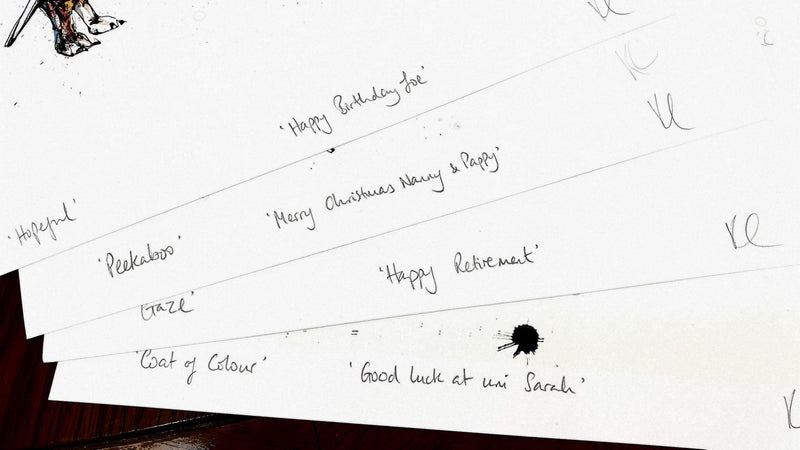 'Happy Birthday Joe'
'Hopeful'
'Merry Christmas Nanny & Pappy'
'Peekaboo'
'Happy Retirement'
Gaze'
'Coat of Colour'
'Good luck at uni Sarah'